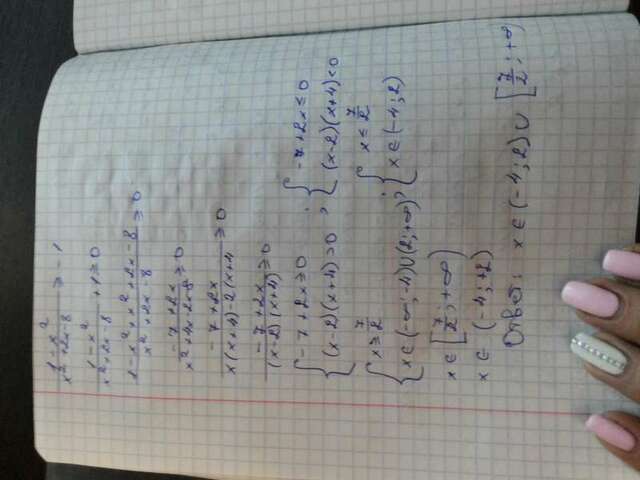 (1-x²)/(x²+2x-8) ≥ -1
(1-x²)/(x²+2x-8) + 1 ≥ 0
(1-x²+x²+2x-8)/(x²+2x-8) ≥ 0
(-7+2x)/(x²+4x-2x-8) ≥ 0
(-7+2x)/(x(x+4)-2(x+4) ≥ 0
(-7+2x)/((x-2)(x+4)) ≥ 0
{ -7+2x ≥ 0 ; { -7+2x ≤ 0
(x-2)(x+4) > 0 (x-2)(x+4) < 0
{ x ≥ 7/2 ; { x ≤ 7/2
x ∈ (-∞; -4) ∪ (2; +∞) x ∈ (-4; 2)
x ∈ [7/2; +∞)
x ∈ (-4; +2)
Ответ: x ∈ (-4; 2) ∪ [7/2; +∞